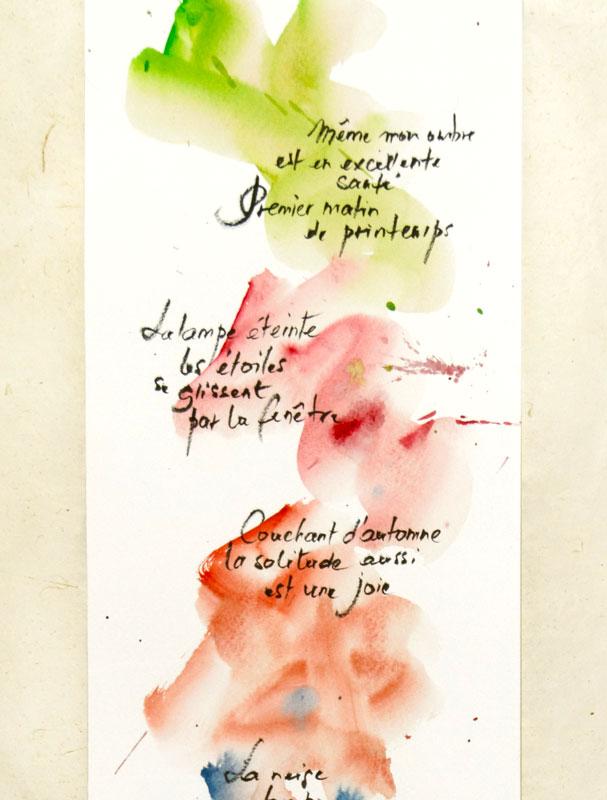 Même mon ombre
est en excellente
santé
Premier matin
de printemps
La lampe éteinte
les étoiles
se glissent
par la fenêtre
Couchant d'automne
la solitude aussi
est une joie
La neige